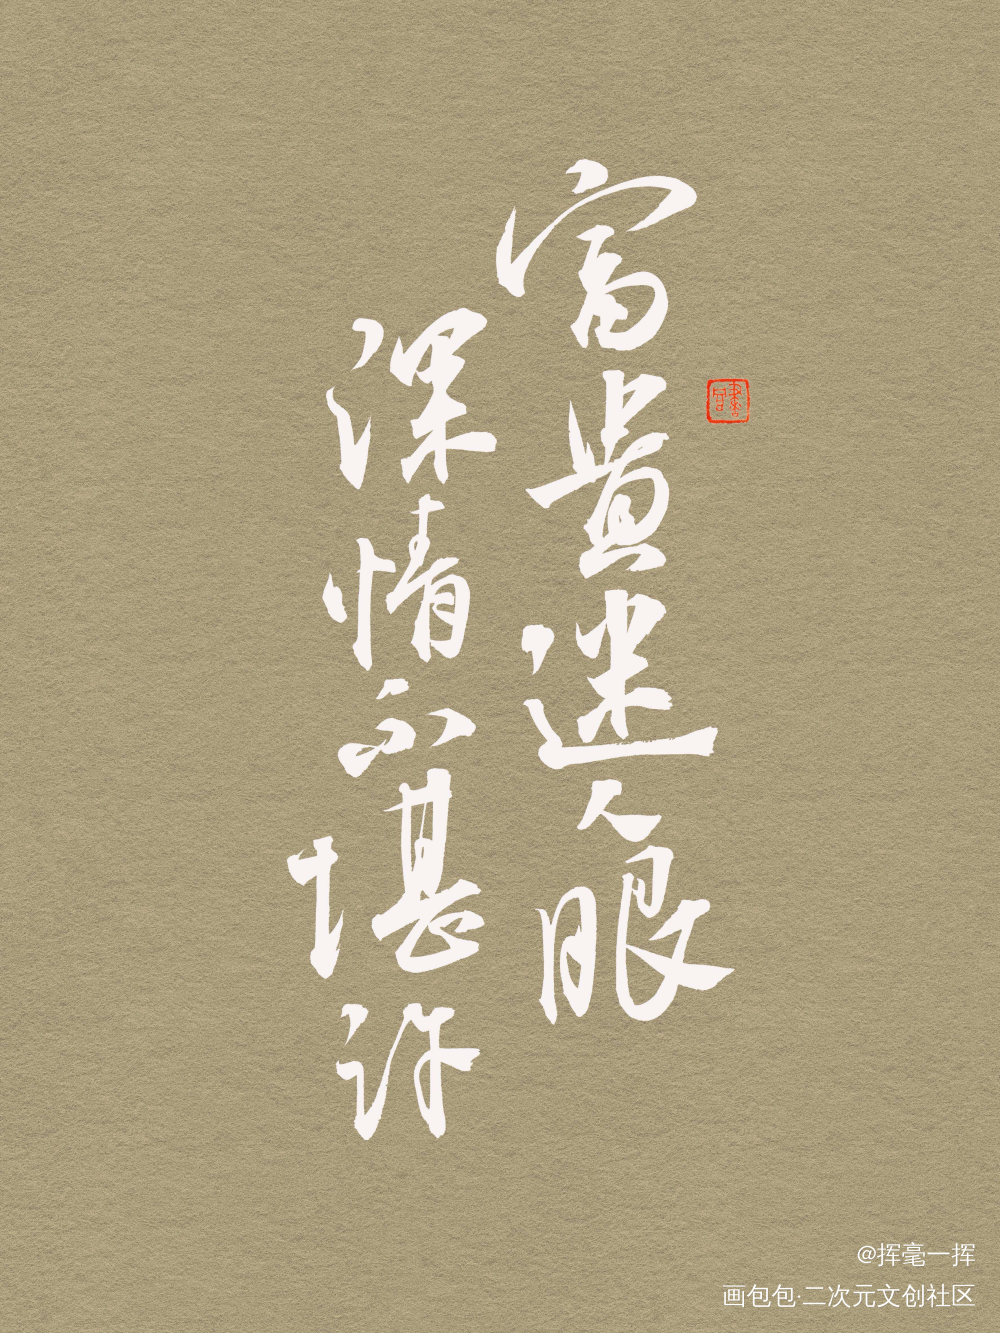 富贵迷人眼
深情不堪许
@挥毫一挥
画包包·二次元文创社区